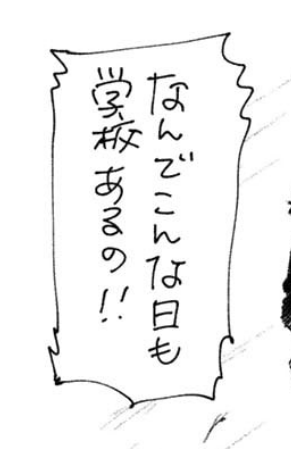 なんでこんな日も
学校あるの!!